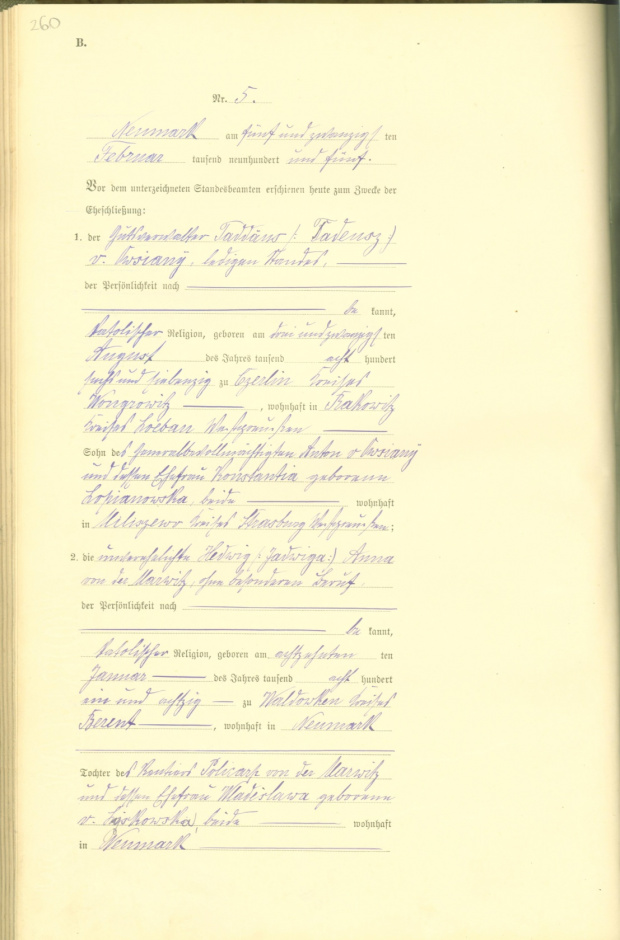 260
B.
Nr. 5.
Neumark am fünf und zwanzigsten
Februar tausend neunhundert und fünf.
Vor dem unterzeichneten Standesbeamten erschienen heute zum Zwecke der
Eheschließung:
1. der Gutsverwalter Taddäus (: Tadeusz :)
v. , ledigen Standes,
der Persönlichkeit nach
be kannt,
katolischer Religion, geboren am drei und zwanzigsten
August des Jahres tausend acht hundert
sechs und siebenzig zu Czerlin Kreises
Wongrowitz, wohnhaft in Krakowitz
Kreises Loebau Westpreussen
Sohn des Generalbevollmächtigten Anton v
und dessen Ehefrau Konstantia geborenen
Lossianowska, beide wohnhaft
in Miliszewo Kreises Strasburg Westpreussen;
2. die unverehelichte Hedwig (: Jadwiga :) Anna
von der Marwitz, ohne besonderen Beruf,
der Persönlichkeit nach
be kannt,
katolischer Religion, geboren am achtzehnten ten
Januar des Jahres tausend acht hundert
ein und achtzig zu Waldowken Kreises
Berent, wohnhaft in Neumark
Tochter des Rentiers Policarp von der Marwitz
und dessen Ehefrau Wladislawa geborenen
v. Lyskowska, beide wohnhaft
in Neumark